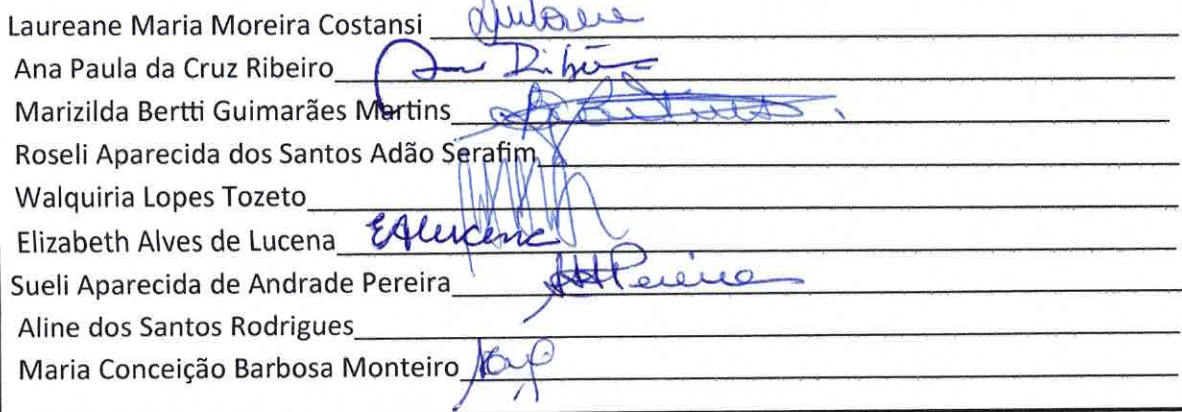 Laureane Maria Moreira Costansi
Ana Paula da Cruz Ribeiro
Marizilda Bertti Guimarães Martins
Roseli Aparecida dos Santos Adão Serafim
Walquiria Lopes Tozeto
Elizabeth Alves de Lucena EALucena
Sueli Aparecida de Andrade Pereira
Aline dos Santos Rodrigues
Maria Conceição Barbosa Monteiro